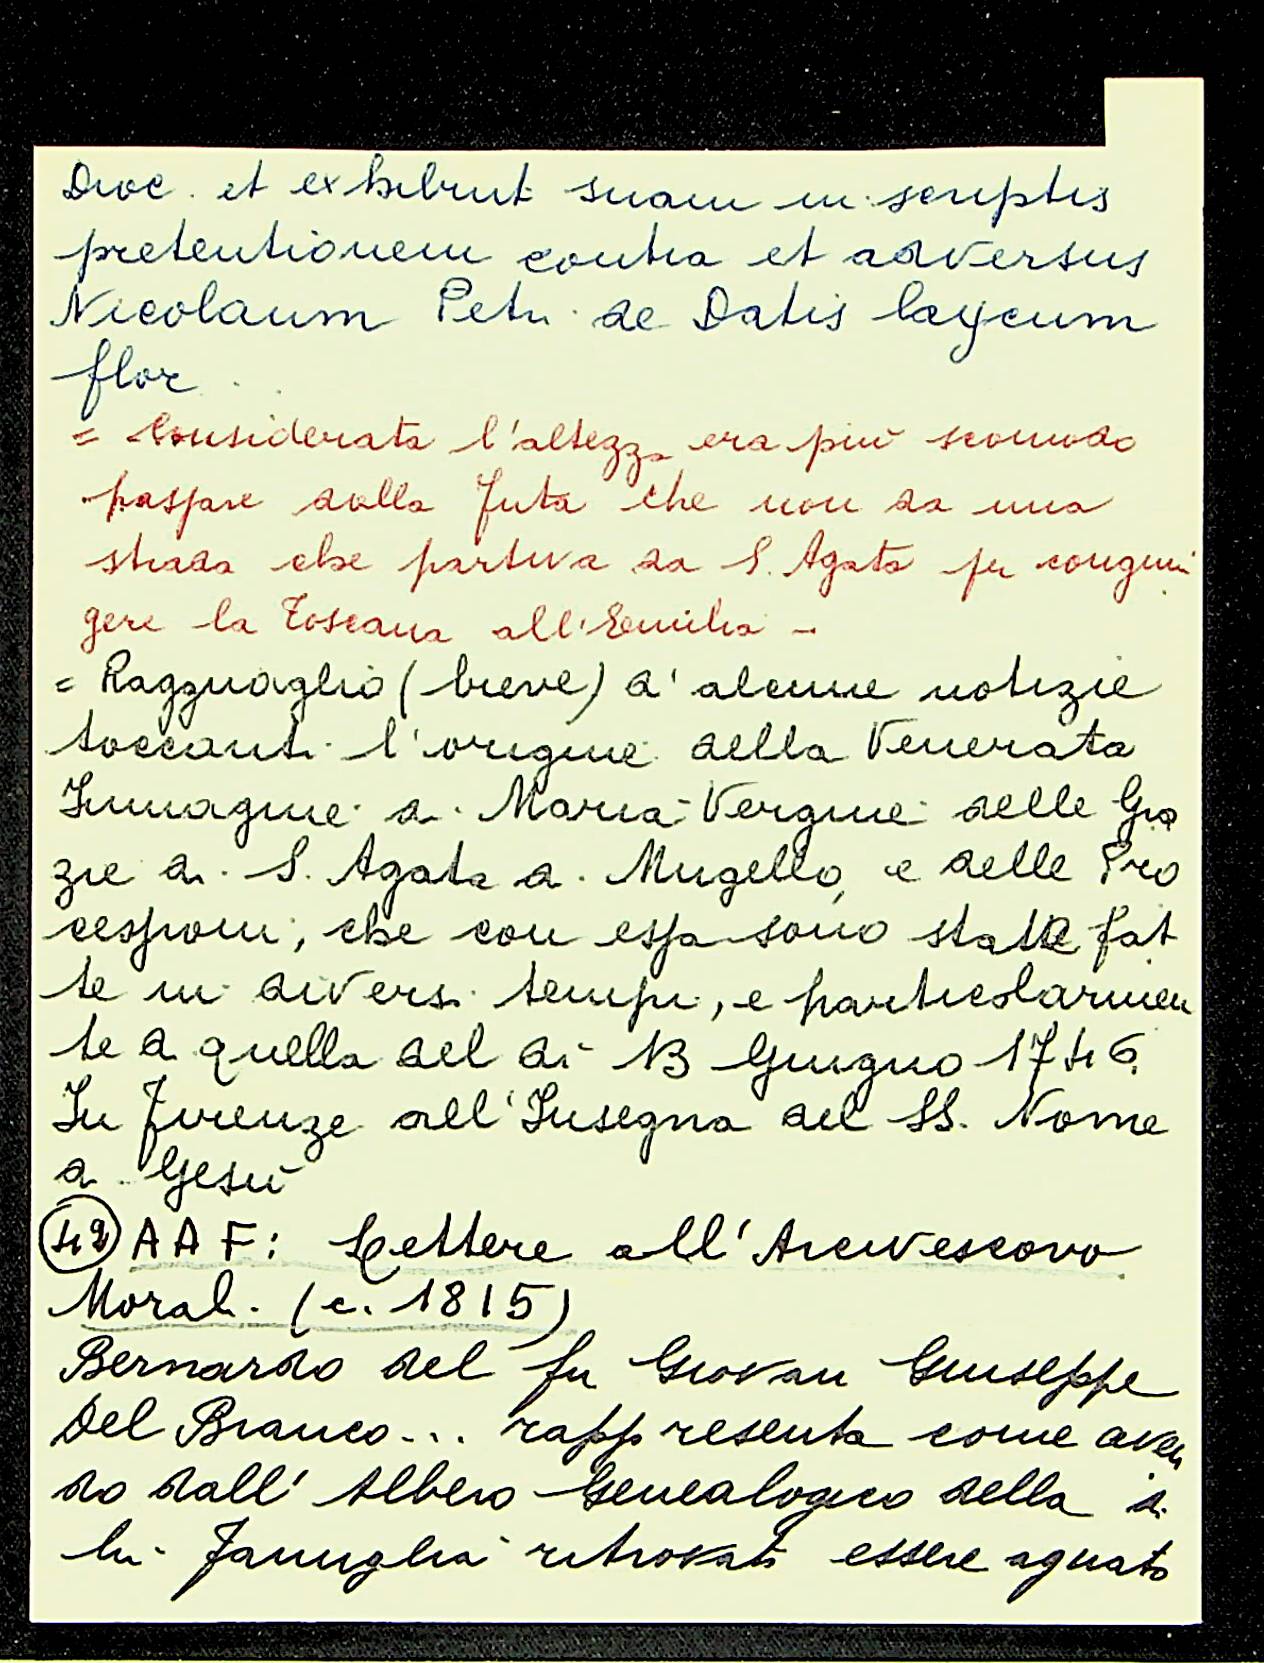 Dioc. et exhibuit suam in scriptis
pretentionem contra et adversus
Nicolaum Petri de Datis laycum
flor.
= Considerata l'altezza era più scomodo
passare dalla Futa che non da una
strada che partiva da S. Agata per congiun
gere la Toscana all'Emilia -
= Ragguaglio (breve) d'alcune notizie
toccanti l'origine della Venerata
Immagine di Maria Vergine delle Gra
zie di S. Agata di Mugello, e delle Pro
cessioni, che con essa sono state fat
te in diversi tempi, e particolarmen
te di quella del dì 13 Giugno 1746.
In Firenze all'Insegna del SS. Nome
di Gesù
(42) A A F: Lettere all'Arcivescovo
Morali. (c. 1815)
Bernardo del fu Giovan Giuseppe
Del Bianco... rappresenta come aven
do dall'Albero Genealogico della di
lui Famiglia ritrovati essere agnato